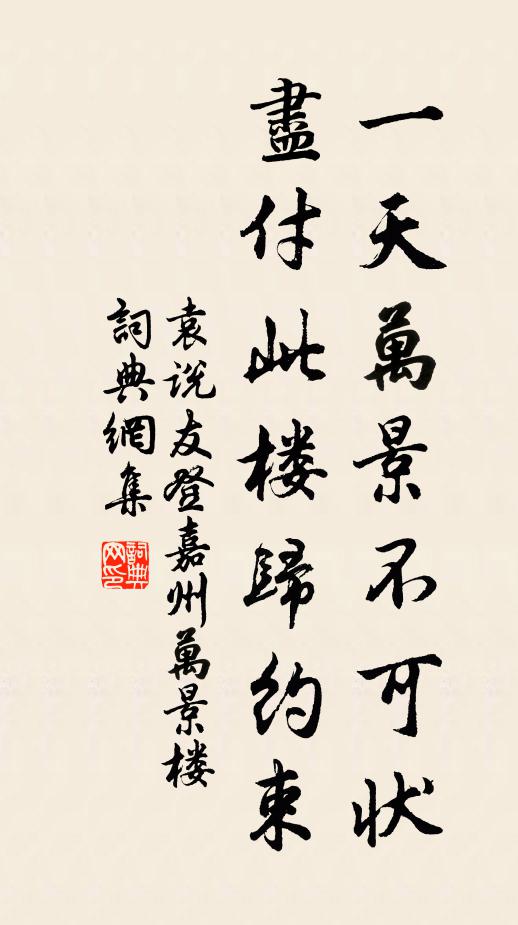 一天萬景不可狀
盡付此楼歸約束
袁说友登嘉州萬景楼
詞典網集
詞典网印